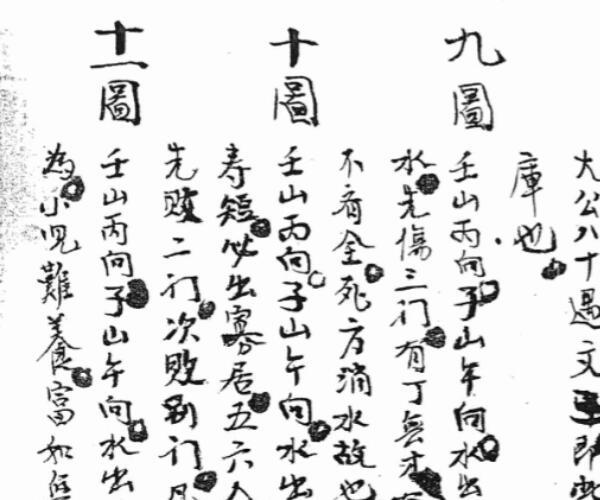 太公八十遇文王即此
庫也
九圖
壬山丙向子山午向水出
水先傷三門有丁無才
不有全死方消水故也
十圖
壬山丙向子山午向水出
寿短必出寡居五六人
先敗二门次敗别门凡
十一圖
壬山丙向子山午向水出
為小児難養食富如